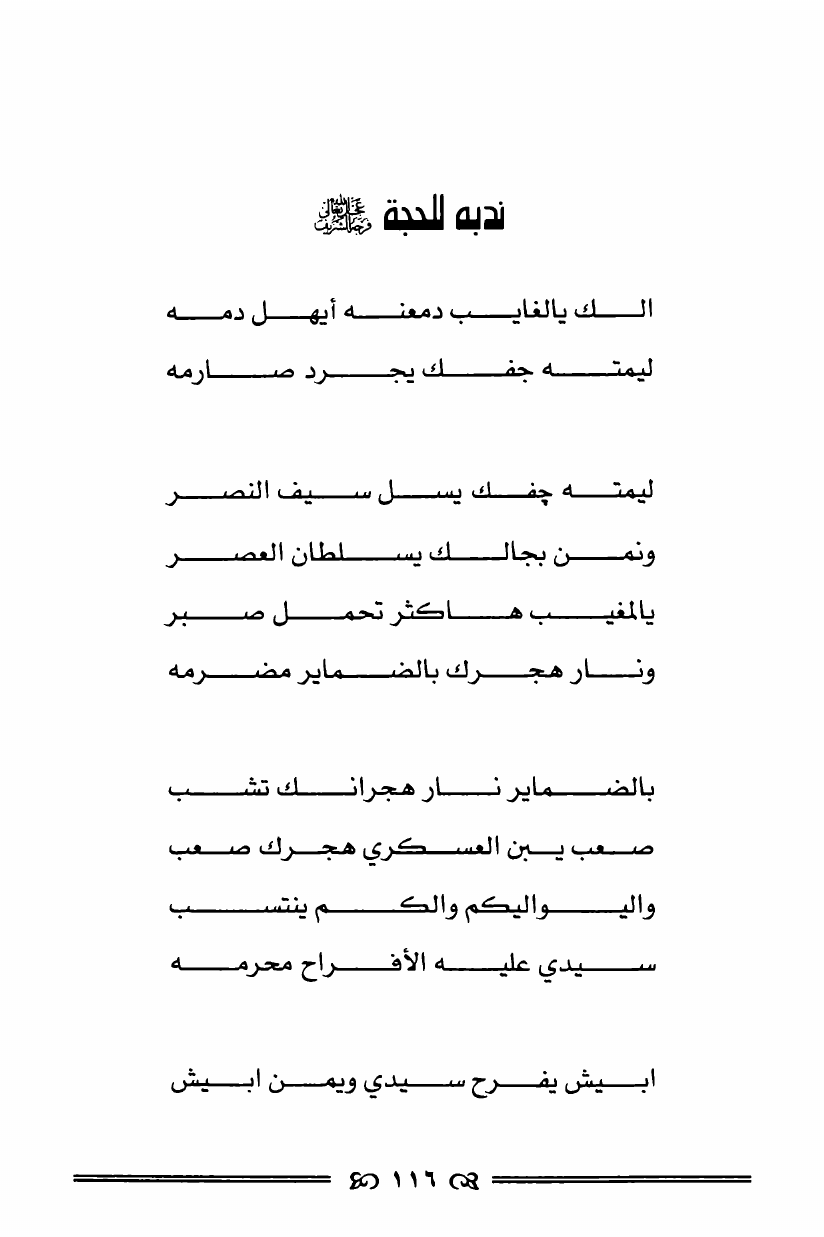 ندبه للحجة عَجَّلَ اللهُ تَعَالَى فَرَجَهُ الشَّرِيف
الـــك يالغايـــب دمعنـــه أيهـــل دمـــه
ليمتـــه جفـــك يجـــرد صـــارمه
ليمتـــه چفـــك يســـل ســـيف النصـــر
ونمـــن بجالـــك يســـلطان العصـــر
يالمغيـــب هـــاكثر تحمـــل صـــبر
ونـــار هجـــرك بالضـــماير مضـــرمه
بالضـــماير نـــار هجرانـــك تشـــب
صـــعب يـــبن العســـكري هجـــرك صـــعب
واليـــواليكم والكـــم ينتســـب
ســـيدي عليـــه الأفـــراح محرمـــه
ابـــيش يفـــرح ســـيدي ويمـــن ابـــيش
١١٦